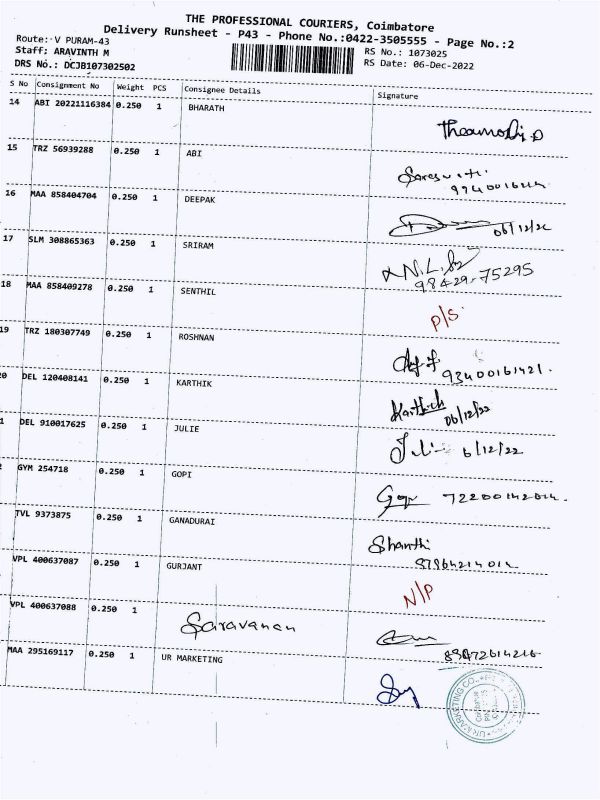 THE PROFESSIONAL COURIERS, Coimbatore
Delivery Runsheet - P43 - Phone No.:0422-3505555 - Page No.:2
Route: V PURAM-43
Staff; ARAVINTH M
DRS No.: DCJB107302502
RS No.: 1073025
RS Date: 06-Dec-2022
S No Consignment No Weight PCS Consignee Details Signature
14 ABI 20221116384 0.250 1 BHARATH
15 TRZ 56939288 0.250 1 ABI
16 MAA 858404704 0.250 1 DEEPAK 06/12/22
17 SLM 308865363 0.250 1 SRIRAM N.L. 98429-75295
18 MAA 858409278 0.250 1 SENTHIL P/S
19 TRZ 180307749 0.250 1 ROSHNAN
0 DEL 120408141 0.250 1 KARTHIK Karthick 06/12/22
1 DEL 910017625 0.250 1 JULIE Juli 6/12/22
GYM 254718 0.250 1 GOPI
TVL 9373875 0.250 1 GANADURAI Shanthi
VPL 400637087 0.250 1 GURJANT N/P
VPL 400637088 0.250 1 Saravanan
MAA 295169117 0.250 1 UR MARKETING